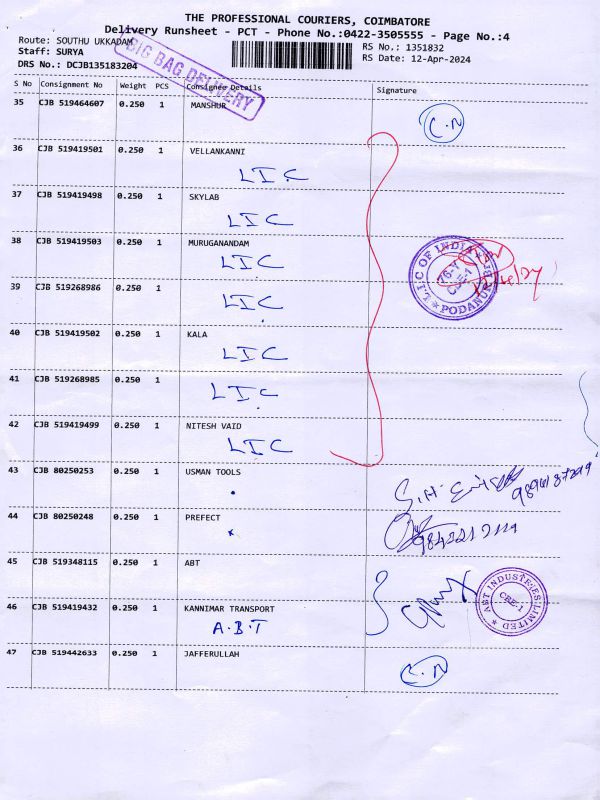 THE PROFESSIONAL COURIERS, COIMBATORE
Delivery Runsheet - PCT - Phone No.:0422-3505555 - Page No.:4
Route: SOUTHU UKKADAM
RS No.: 1351832
Staff: SURYA
RS Date: 12-Apr-2024
DRS No.: DCJB135183204
BIG BAG DELIVERY
S No Consignment No Weight PCS Consignee Details Signature
35 CJB 519464607 0.250 1 MANSHUR
C.N
36 CJB 519419501 0.250 1 VELLANKANNI
LIC
37 CJB 519419498 0.250 1 SKYLAB
LIC
38 CJB 519419503 0.250 1 MURUGANANDAM
LIC
L.I.C OF INDIA
PODANUR
39 CJB 519268986 0.250 1
LIC
40 CJB 519419502 0.250 1 KALA
LIC
41 CJB 519268985 0.250 1
LIC
42 CJB 519419499 0.250 1 NITESH VAID
LIC
43 CJB 80250253 0.250 1 USMAN TOOLS
44 CJB 80250248 0.250 1 PREFECT
45 CJB 519348115 0.250 1 ABT
ABT INDUSTRIES LIMITED
CBE-1
46 CJB 519419432 0.250 1 KANNIMAR TRANSPORT
A.B.T
47 CJB 519442633 0.250 1 JAFFERULLAH
C.N